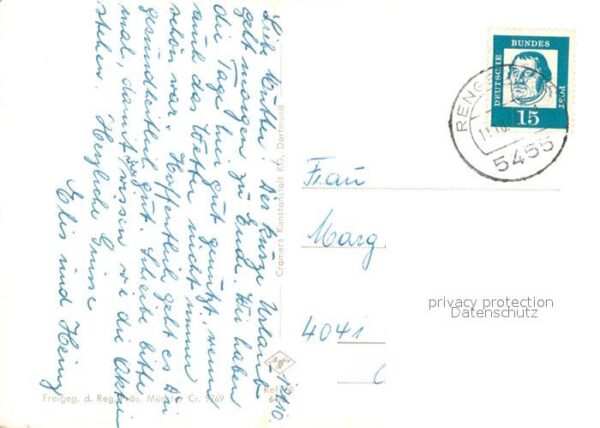 11.10.
Lieb Mutter! Der kurze Urlaub
geht morgen zu Ende. Wir haben
die Tage hier gut genutzt, wenn
auch das Wetter nicht immer
schön war. Hoffentlich geht es Dir
gesundheitlich gut. Schreibe bitte
mal, damit wir wissen wie die Aktien
stehen. Herzliche Grüsse
Elis und Heinz
Cramers Kunstanstalt KG, Dortmund
Freigeg. d. Reg. Präs. Münster Cr. 9769
DEUTSCHE
BUNDES
POST
15
RENGS
5455
Frau
Marg
4041
privacy protection
Datenschutz